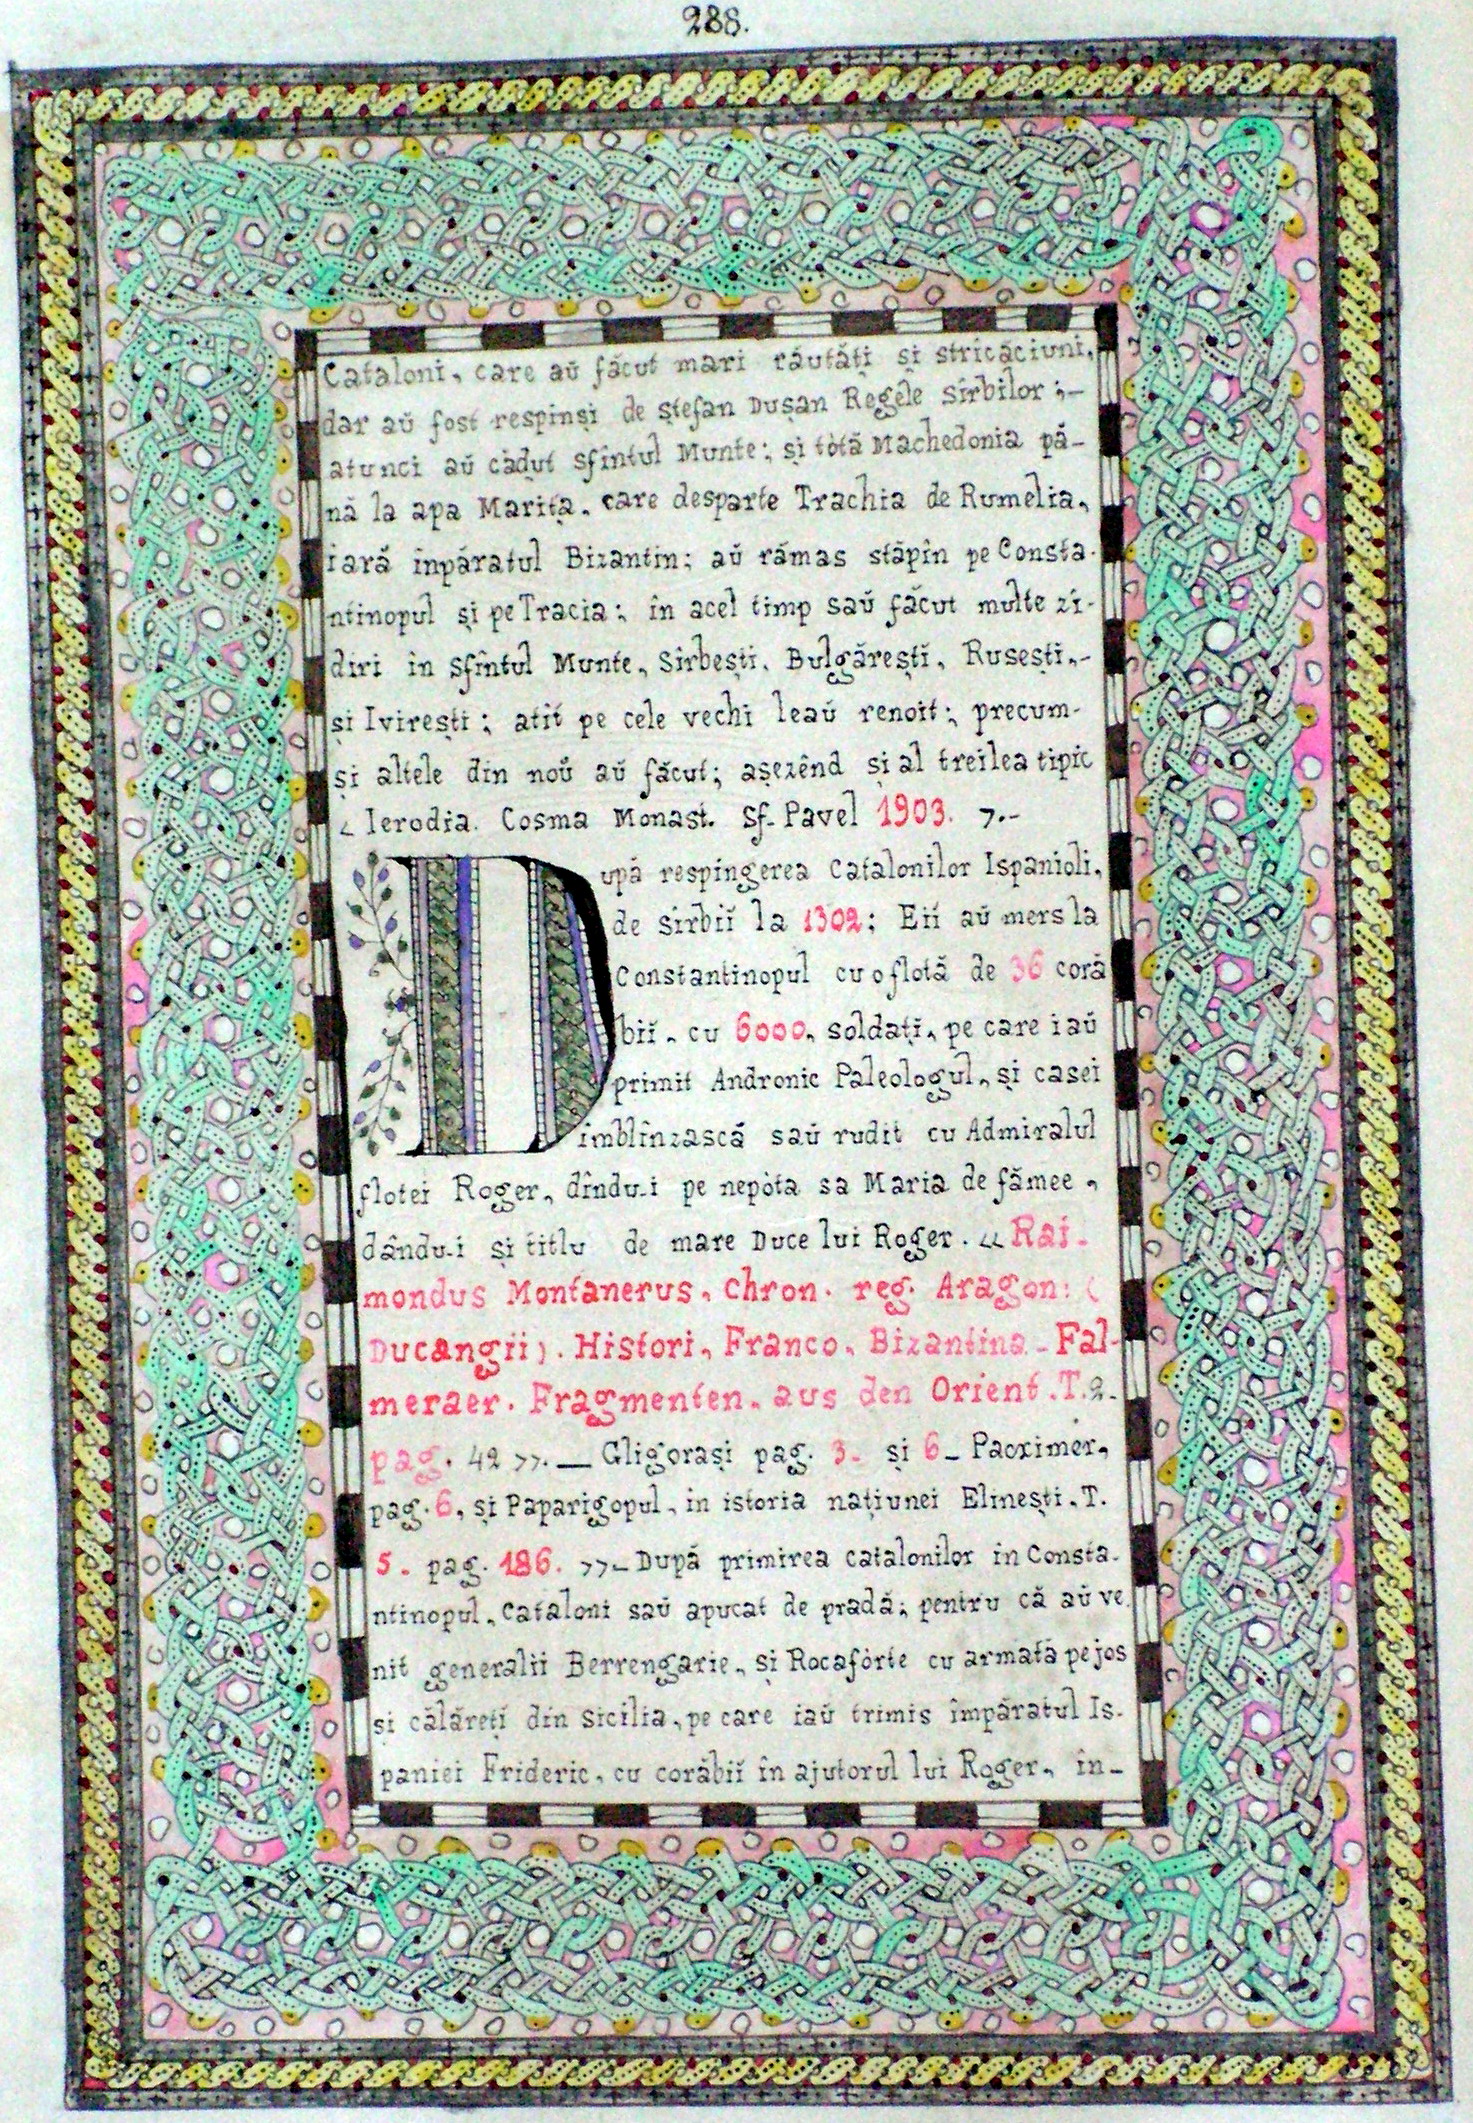 288.
Cataloni, care aŭ făcut mari răutăți și stricăciuni,
dar aŭ fost respinși de Ștefan Dușan Regele sîrbilor;-
atunci aŭ cădut sfîntul Munte; și tótă Machedonia pă-
nă la apa Marița, care desparte Trachia de Rumelia,
iară inpăratul Bizantin; aŭ rămas stăpîn pe Consta-
ntinopul și pe Tracia; în acel timp saŭ făcut multe zi-
diri în Sfîntul Munte, Sîrbești, Bulgărești, Rusești,-
și Ivirești; atît pe cele vechi leaŭ renoit; precum-
și altele din noŭ aŭ făcut; așezênd și al treilea tipic
< Ierodia. Cosma Monast. Sf. Pavel 1903. >.-
După respingerea Catalonilor Ispanioli,
de sirbiĭ la 1302; Eiĭ aŭ mers la
Constantinopul cu o flotă de 36 coră
biĭ, cu 6000, soldați, pe care iaŭ
primit Andronic Paleologul, și casei
imblînzască saŭ rudit cu Admiralul
flotei Roger, dîndu-i pe nepóta sa Maria de fămee,
dându-i și titlu de mare Duce lui Roger. << Rai-
mondus Montanerus, Chron. reg. Aragon: (
Ducangii). Histori, Franco, Bizantina - Fal-
meraer. Fragmenten, aus den Orient. T.2.
pag. 42 >>. — Gligorași pag. 3- și 6- Pacximer,
pag. 6, și Paparigopul, in istoria națiunei Elinești, T.
5- pag. 186. >>- După primirea catalonilor in Consta-
ntinopul, Cataloni saŭ apucat de pradă; pentru că aŭ ve
nit generalii Berrengarie, și Rocafórte cu armată pe jos
și călăreți din Sicilia, pe care iaŭ trimis împăratul Is-
paniei Frideric, cu corăbiĭ în ajutorul lui Roger, în-